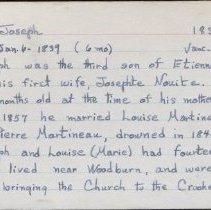 Joseph 18
Jan. 6 - 1839 (6 mo) Vanc.
ph was the third son of Etienn
is first wife, Josephte Nouite.
months old at the time of his mothe
1857 he married Louise Martine
Pierre Martineau, drowned in 184
ph and Louise (Marie) had fourte
lived near Woodburn, and were
bringing the Church to the Crooke